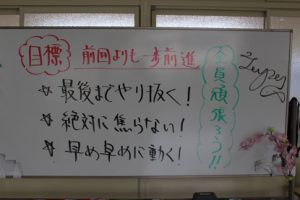 目標 前回よりも一歩前進
☆最後までやり抜く！
☆絶対に焦らない！
☆早め早めに動く！
全員頑張ろう！！